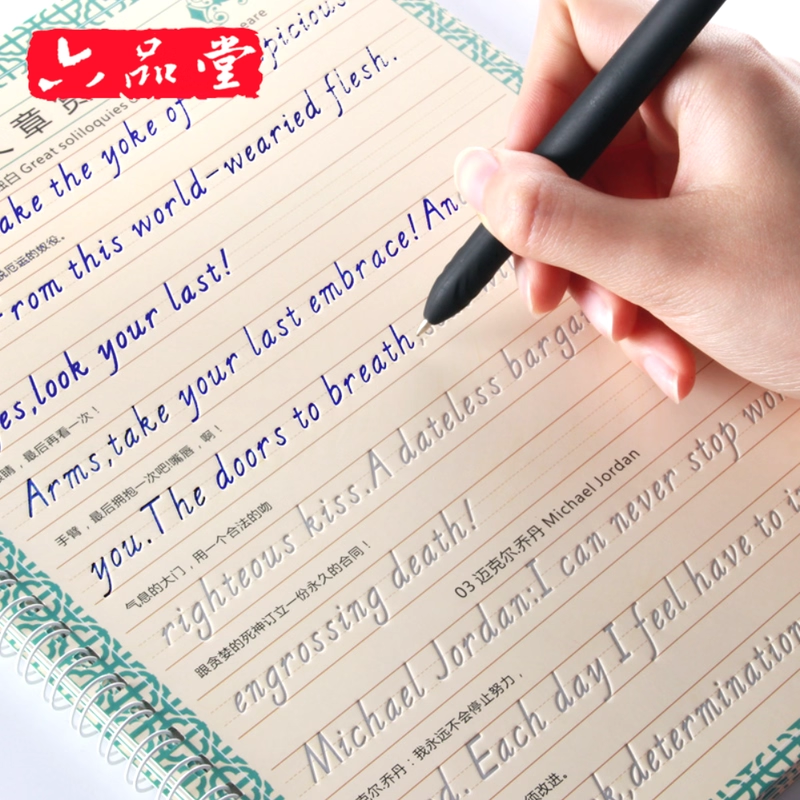 六品堂
picious
章
独白 Great soliloquies
ake the yoke of
脱厄运的奴役。
rom this world-wearied flesh.
es,look your last!
眼睛，最后再看一次！
Arms,take your last embrace! And
手臂，最后拥抱一次吧!嘴唇，啊！
you.The doors to breath,
气息的大门，用一个合法的吻
righteous kiss.A dateless barga
跟贪婪的死神订立一份永久的合同！
engrossing death!
03 迈克尔.乔丹 Michael Jordan
Michael Jordan:I can never stop wor
克尔.乔丹：我永远不会停止努力，
d. Each day I feel have to i
须改进。
k,determination